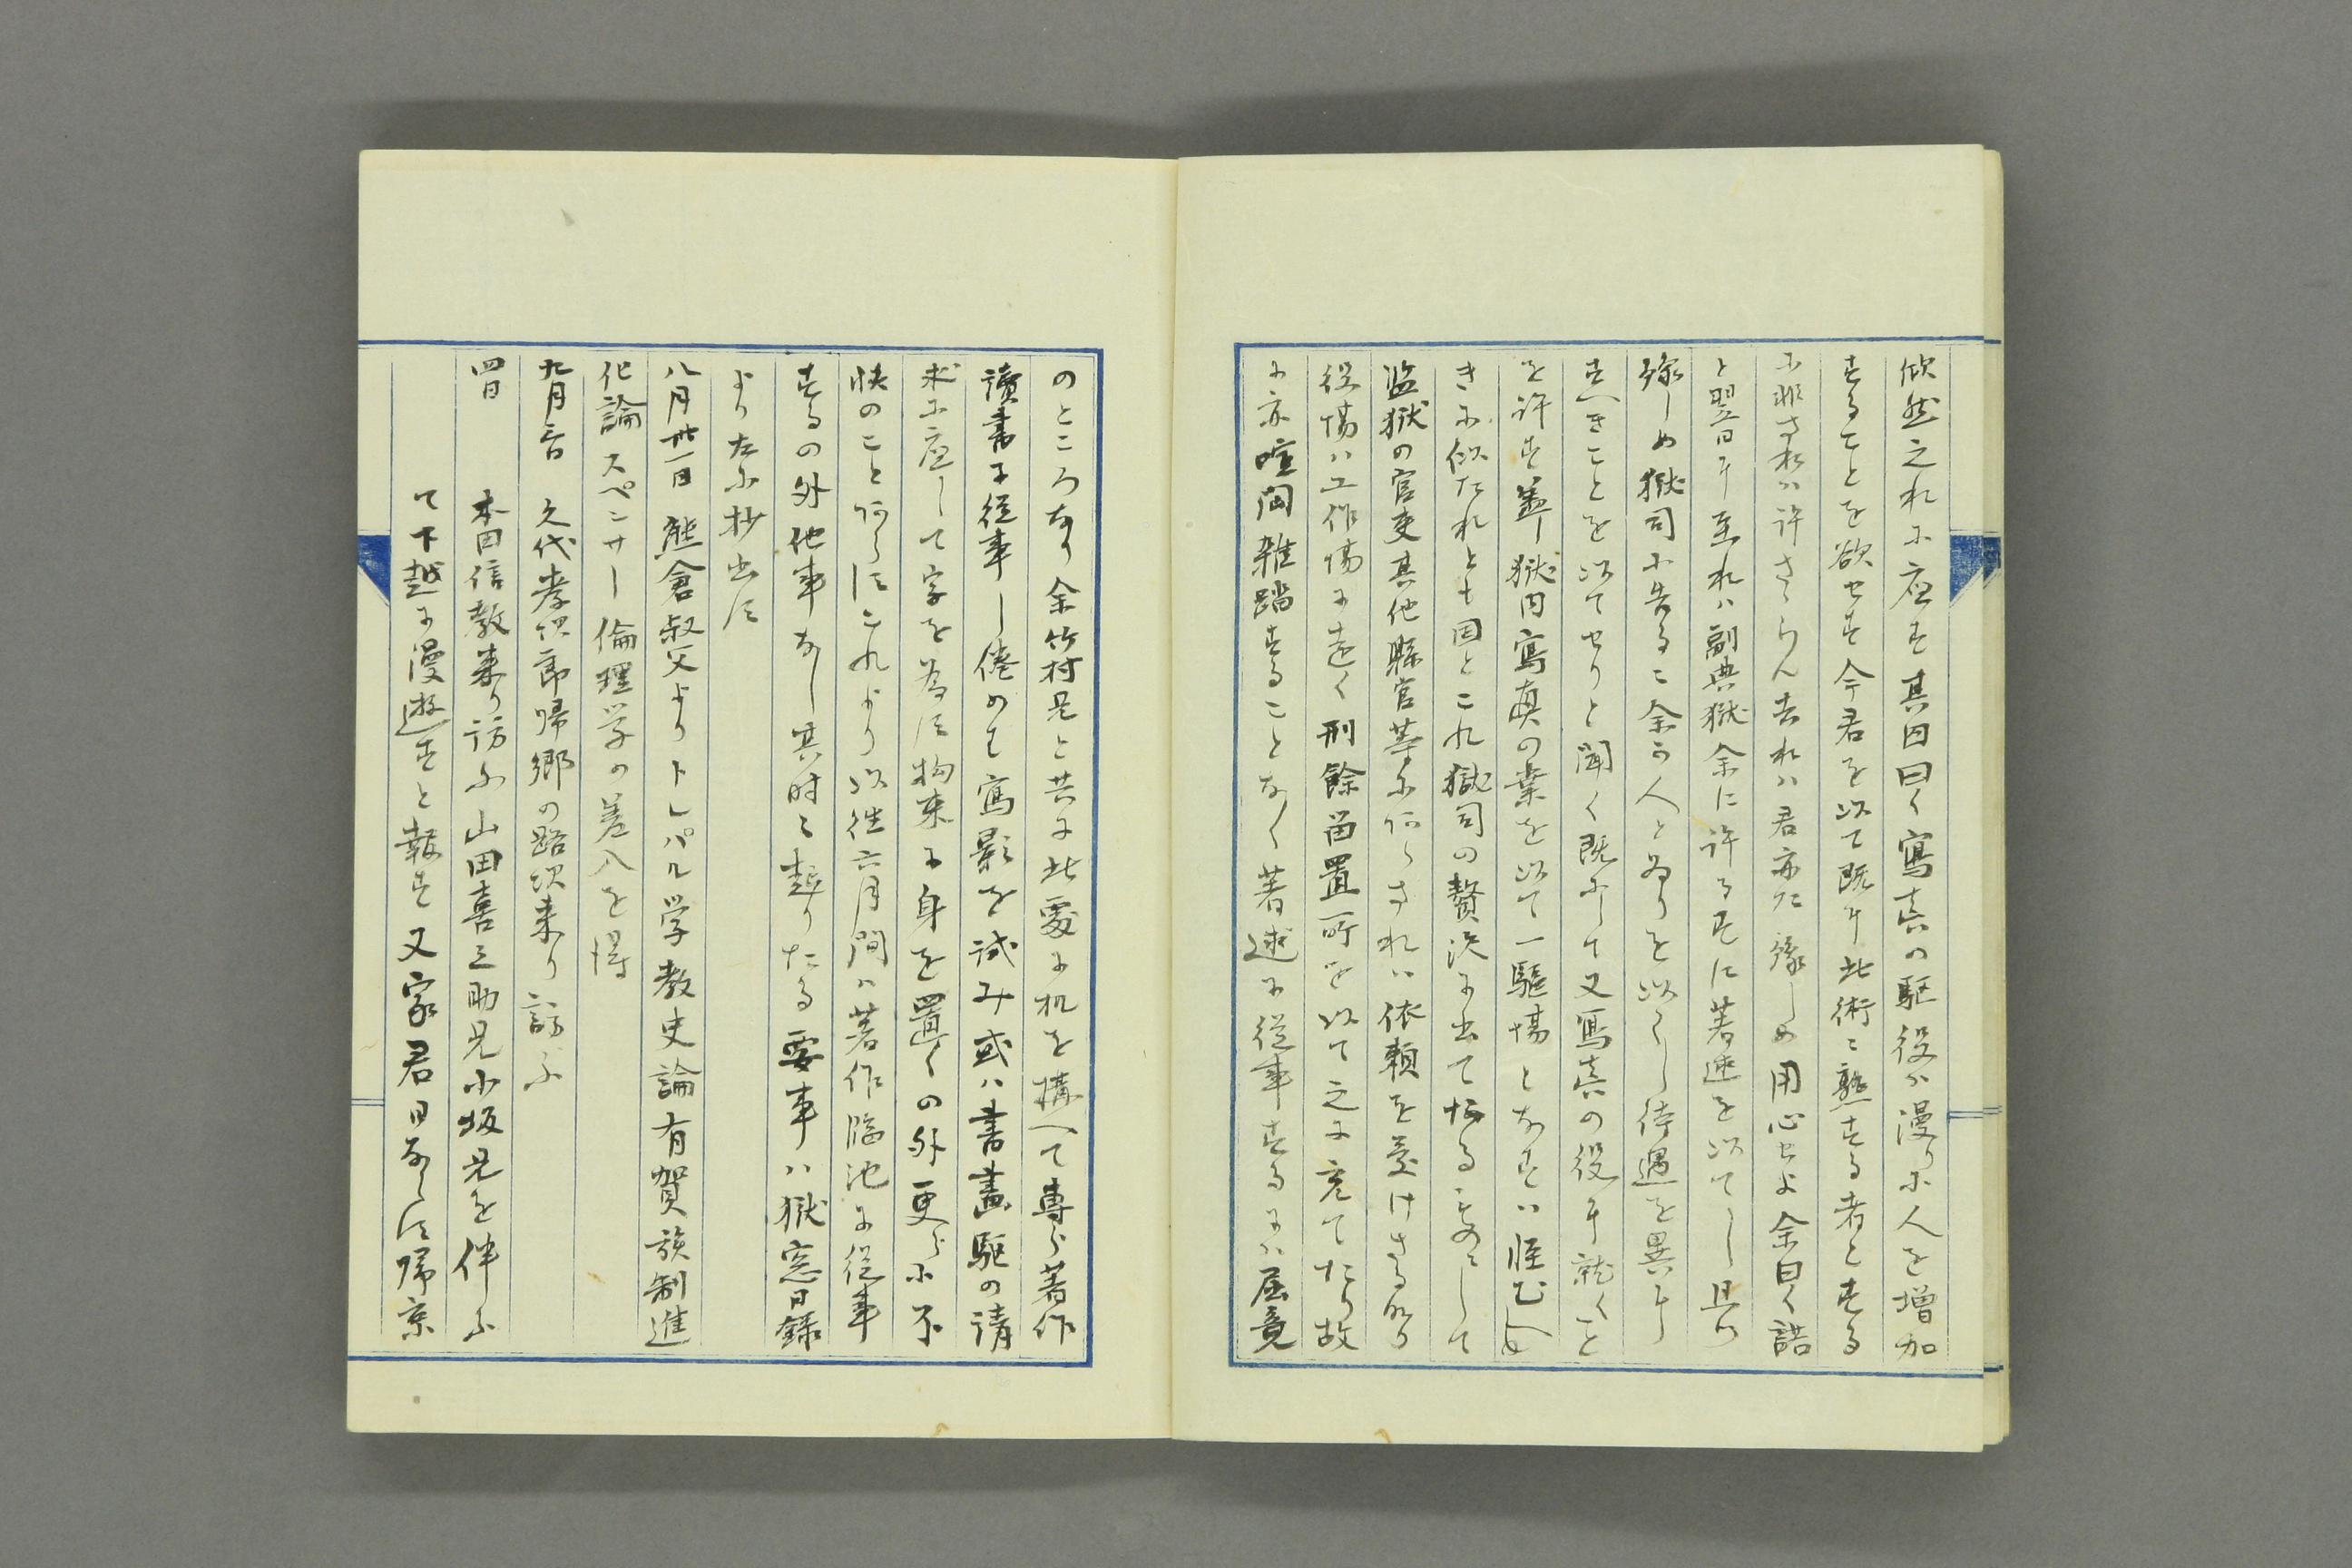 欣然之れに応す其因曰く寫真の駆役ハ漫りに人を増加
することを欲せす今君を以て既ニ此術ニ熟する者とする
に非されハ許さゝらん去れハ君亦た豫しめ用心せよ余曰く諾
と翌日ニ至れハ副典獄余に許るすに著述を以てし且つ
豫しめ獄司に告るニ余の人と為りを以てし待遇を異ニ
すへきことを以てせりと聞く既にして又寫真の役ニ就くこと
を許す蓋し獄内寫真の業を以て一駆場となすハ怪むへ
きに似たれとも固とこれ獄司の贅沢に出て
監獄の官吏其他縣官等に何らされハ依頼を受けさるなり
役場ハ工作場に遠く刑餘留置所を以て之に充てたり故
に亦喧鬧雑踏することなく著述に従事するにハ屈竟
のところなり余竹村兄と共に此處に机を構へて専ら著作
讀書に従事し倦めて寫影を試み或ハ書畫駆の請
求に應して字を為す拘束に身を置くの外更らに不
快のことあらすこれより以往六月間ハ著作臨池に従事
するの外他事なし其時々起りたる要事ハ獄窓日録
より左に抄出す
八月廿一日 熊倉叔父よりトレパル学教史論有賀族制進
化論スペンサー倫理学の差入を得
九月三日 久代孝次郎帰郷の路次来り訪ふ
四日 本田信教来り訪ふ山田喜三助兄小坂兄を伴ふ
て下越に漫遊すと報す又家君日ならす帰京